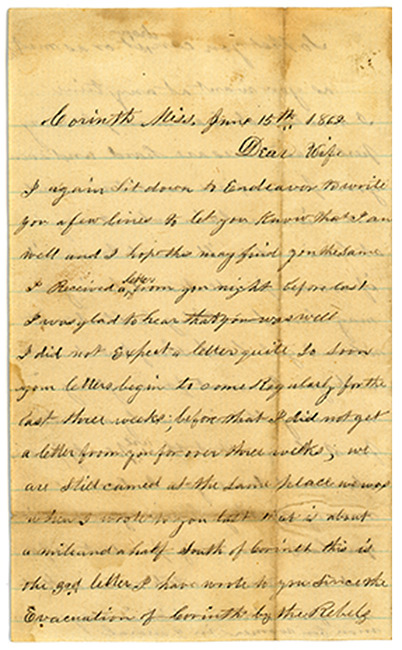 Corinth Miss. June 15th 1862
Dear Wife
I again Sit down to Endeavor to write
you a few lines to let you Know that I am
well and I hope this may find you the Same
I Received a letter from you night before last
I was glad to hear that you was well
I did not Expect a letter quite So Soon
your letters begin to come Regularly for the
last three weeks before that I did not get
a letter from you for over three weeks, we
are Still camed at the Same place we was
when I wrote to you last that is about
a mile and a half South of Corinth this is
the 3rd letter I have wrote to you Since the
Evacuation of Corinth by the Rebels